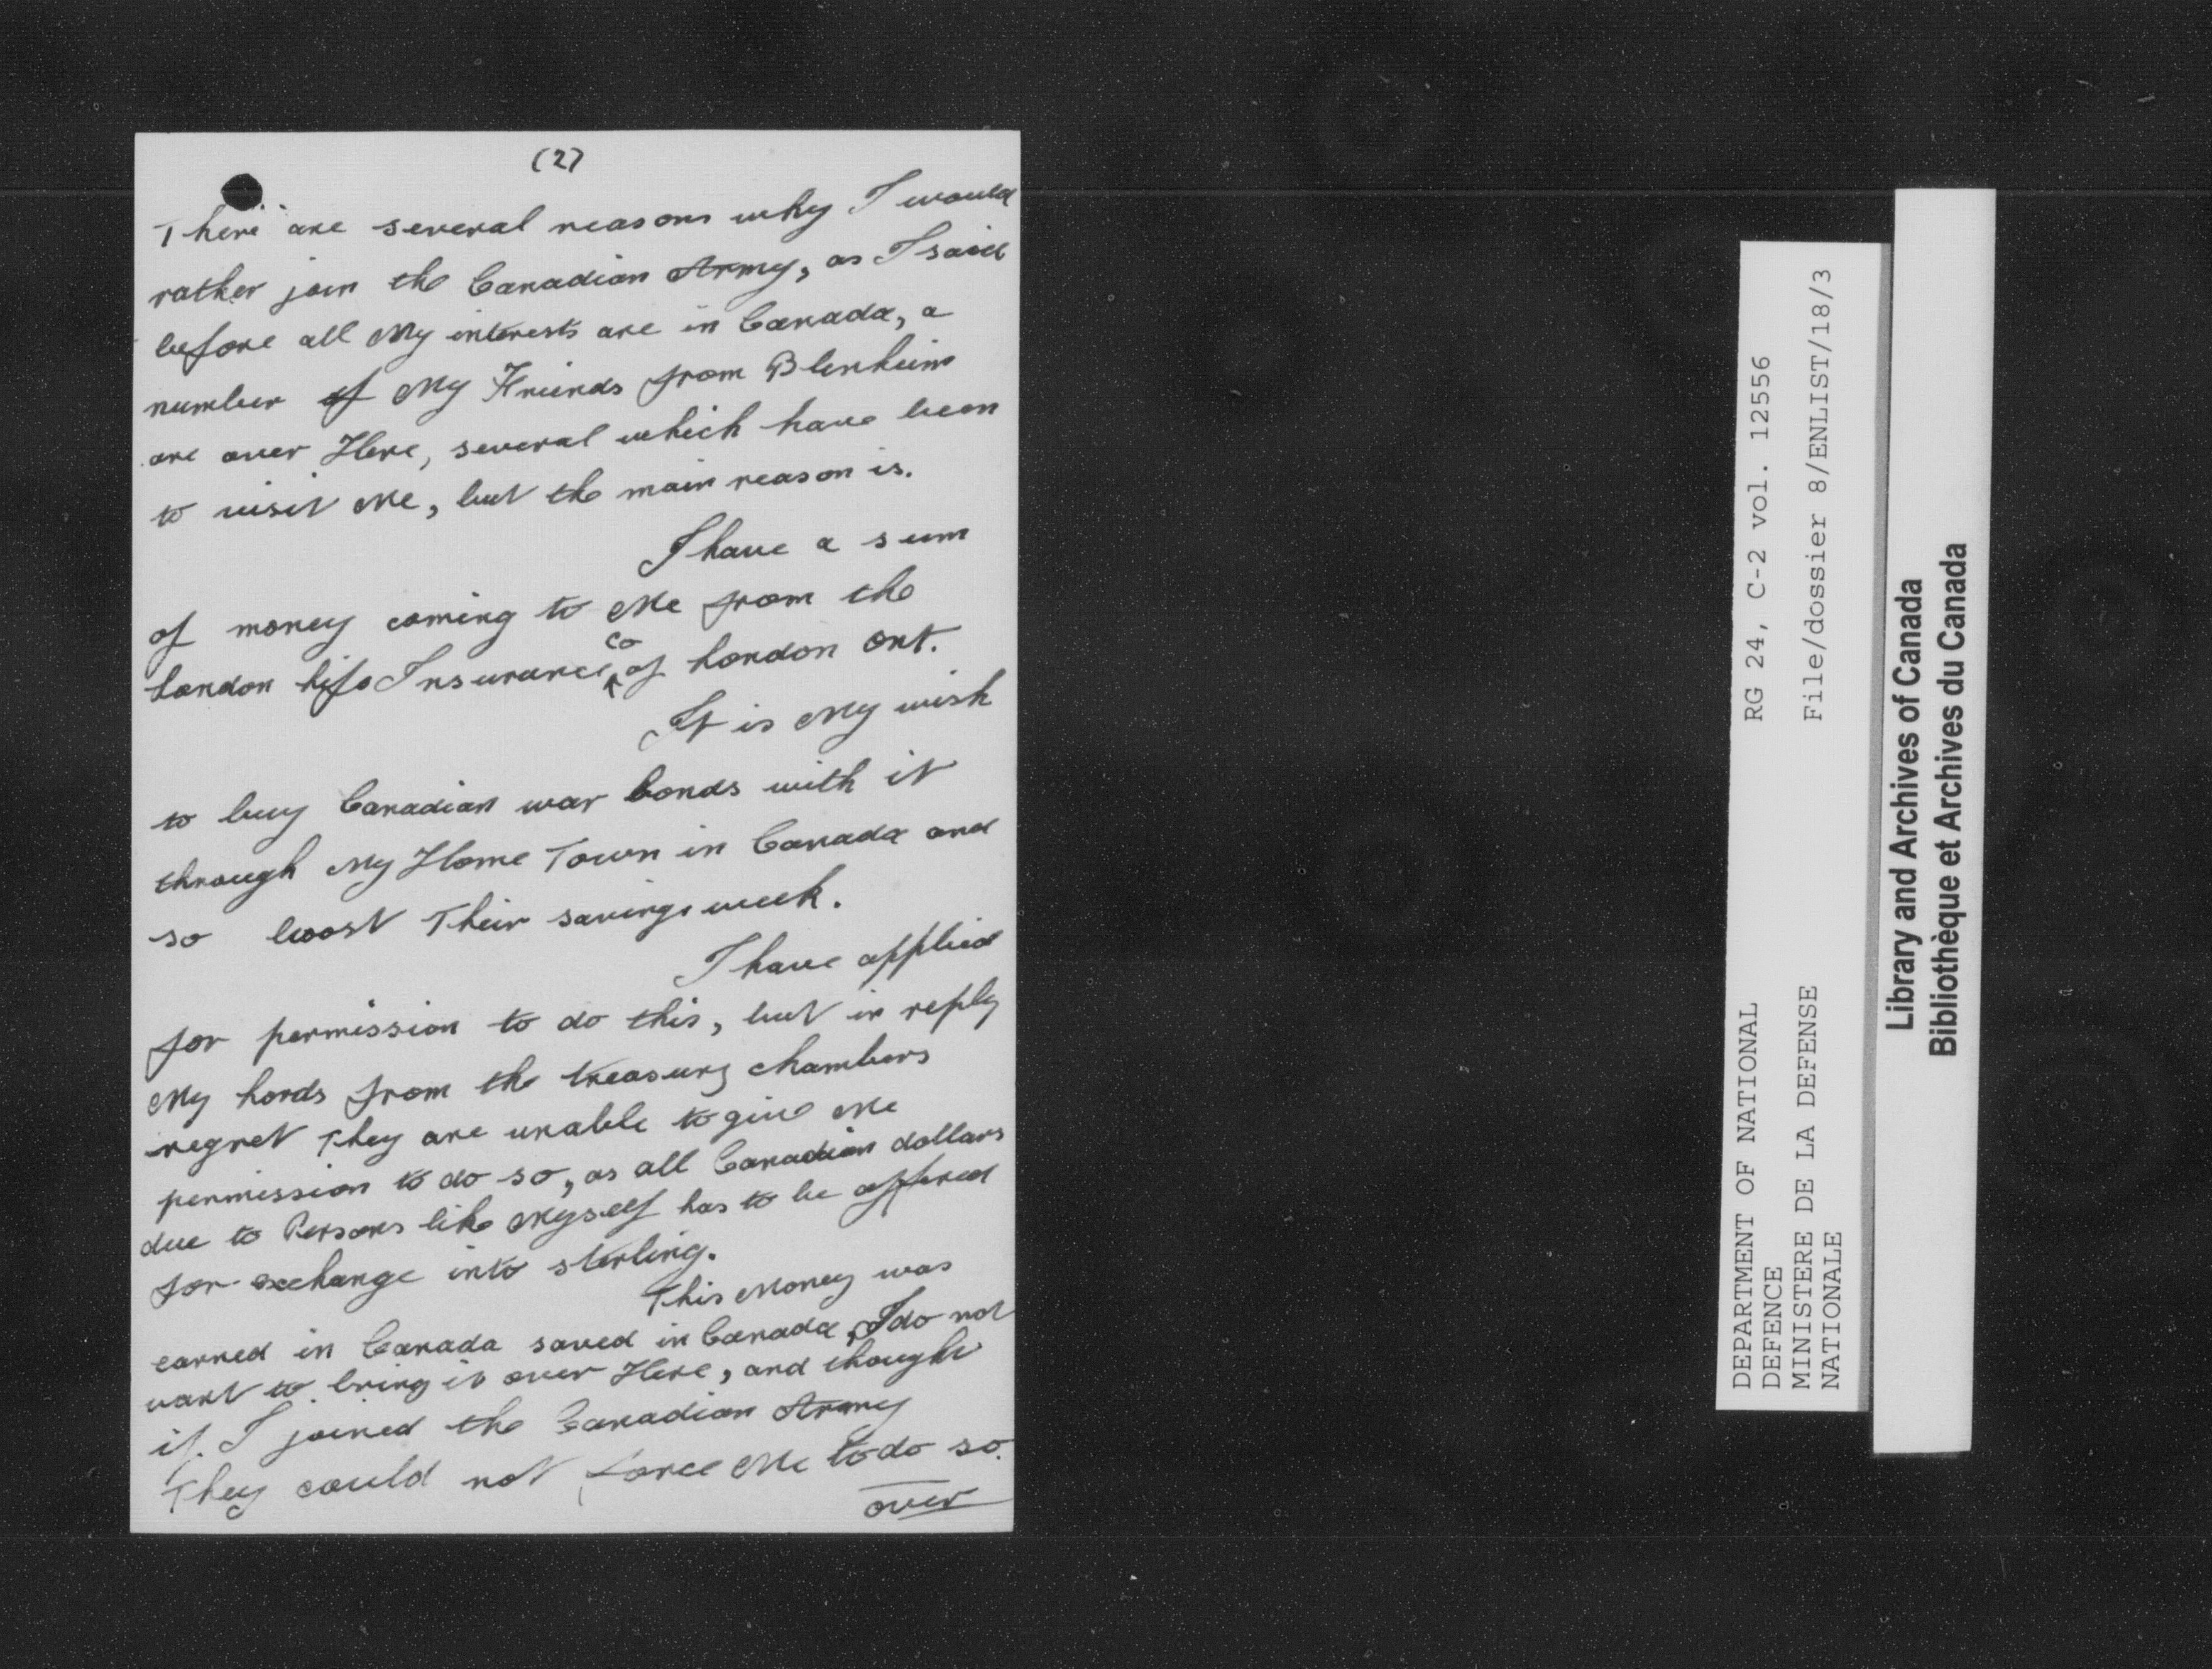 (2)
There are several reasons why I would
rather join the Canadian Army, as I said
before all My interests are in Canada, a
number of My Friends from Blenheim
are over Here, several which have been
to visit Me, but the main reason is.
I have a sum
of money coming to Me from the
London Life Insurance co of London Ont.
It is My wish
to buy Canadian war bonds with it
through My Home Town in Canada and
so boost Their savings week.
I have applied
for permission to do this, but in reply
My Lords from the treasury chambers
regret They are unable to give Me
permission to do so, as all Canadian dollars
due to Persons like Myself has to be offered
for exchange into sterling.
This Money was
earned in Canada saved in Canada, I do not
want to bring it over Here, and thought
if I joined the Canadian Army
They could not force Me to do so.
over
DEPARTMENT OF NATIONAL
DEFENCE
MINISTERE DE LA DEFENSE
NATIONALE
RG 24, C-2 vol. 12556
File/dossier 8/ENLIST/18/3
Library and Archives of Canada
Bibliothèque et Archives du Canada